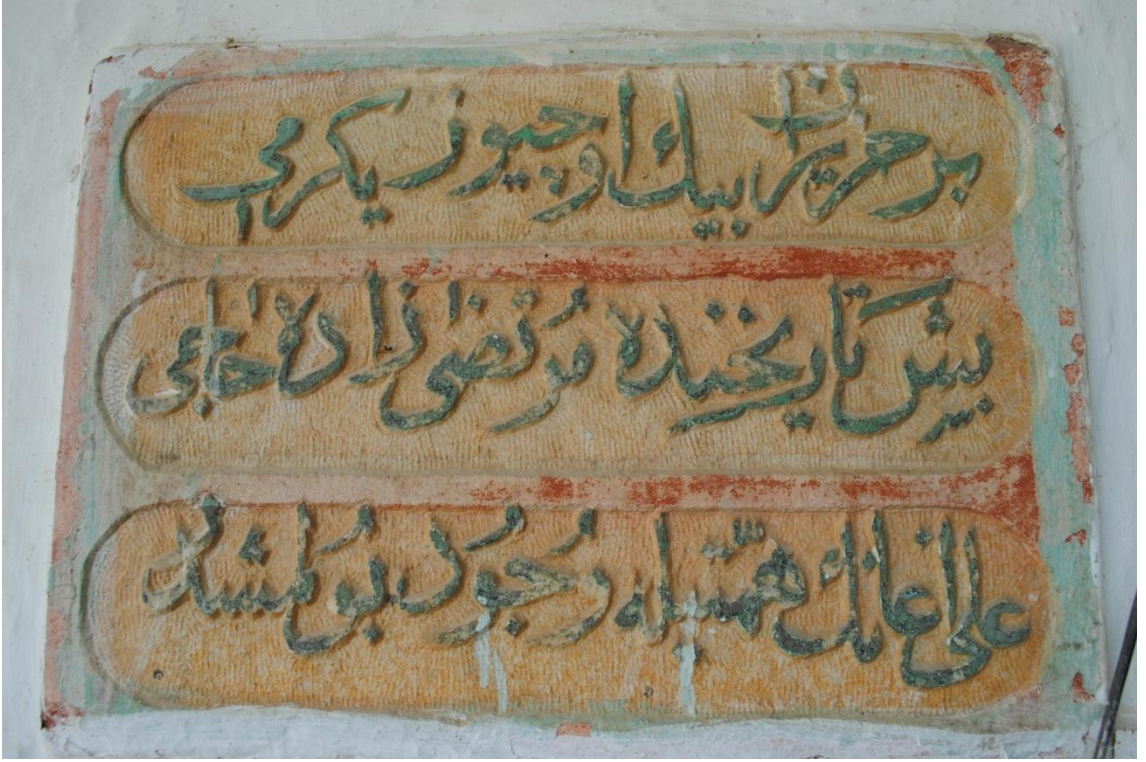 بر حزيران بيك اوچيوز يكرمى
بيش تاريخنده مُرتضى زاده حاجى
على اغانك همّتيله وُجُود بُولمشدر